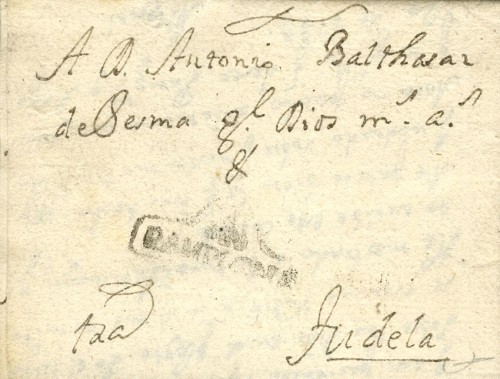 A D. Antonio Balthasar
de Sesma g.l Dios m.s a.s
&
PAMPLONA
Tudela